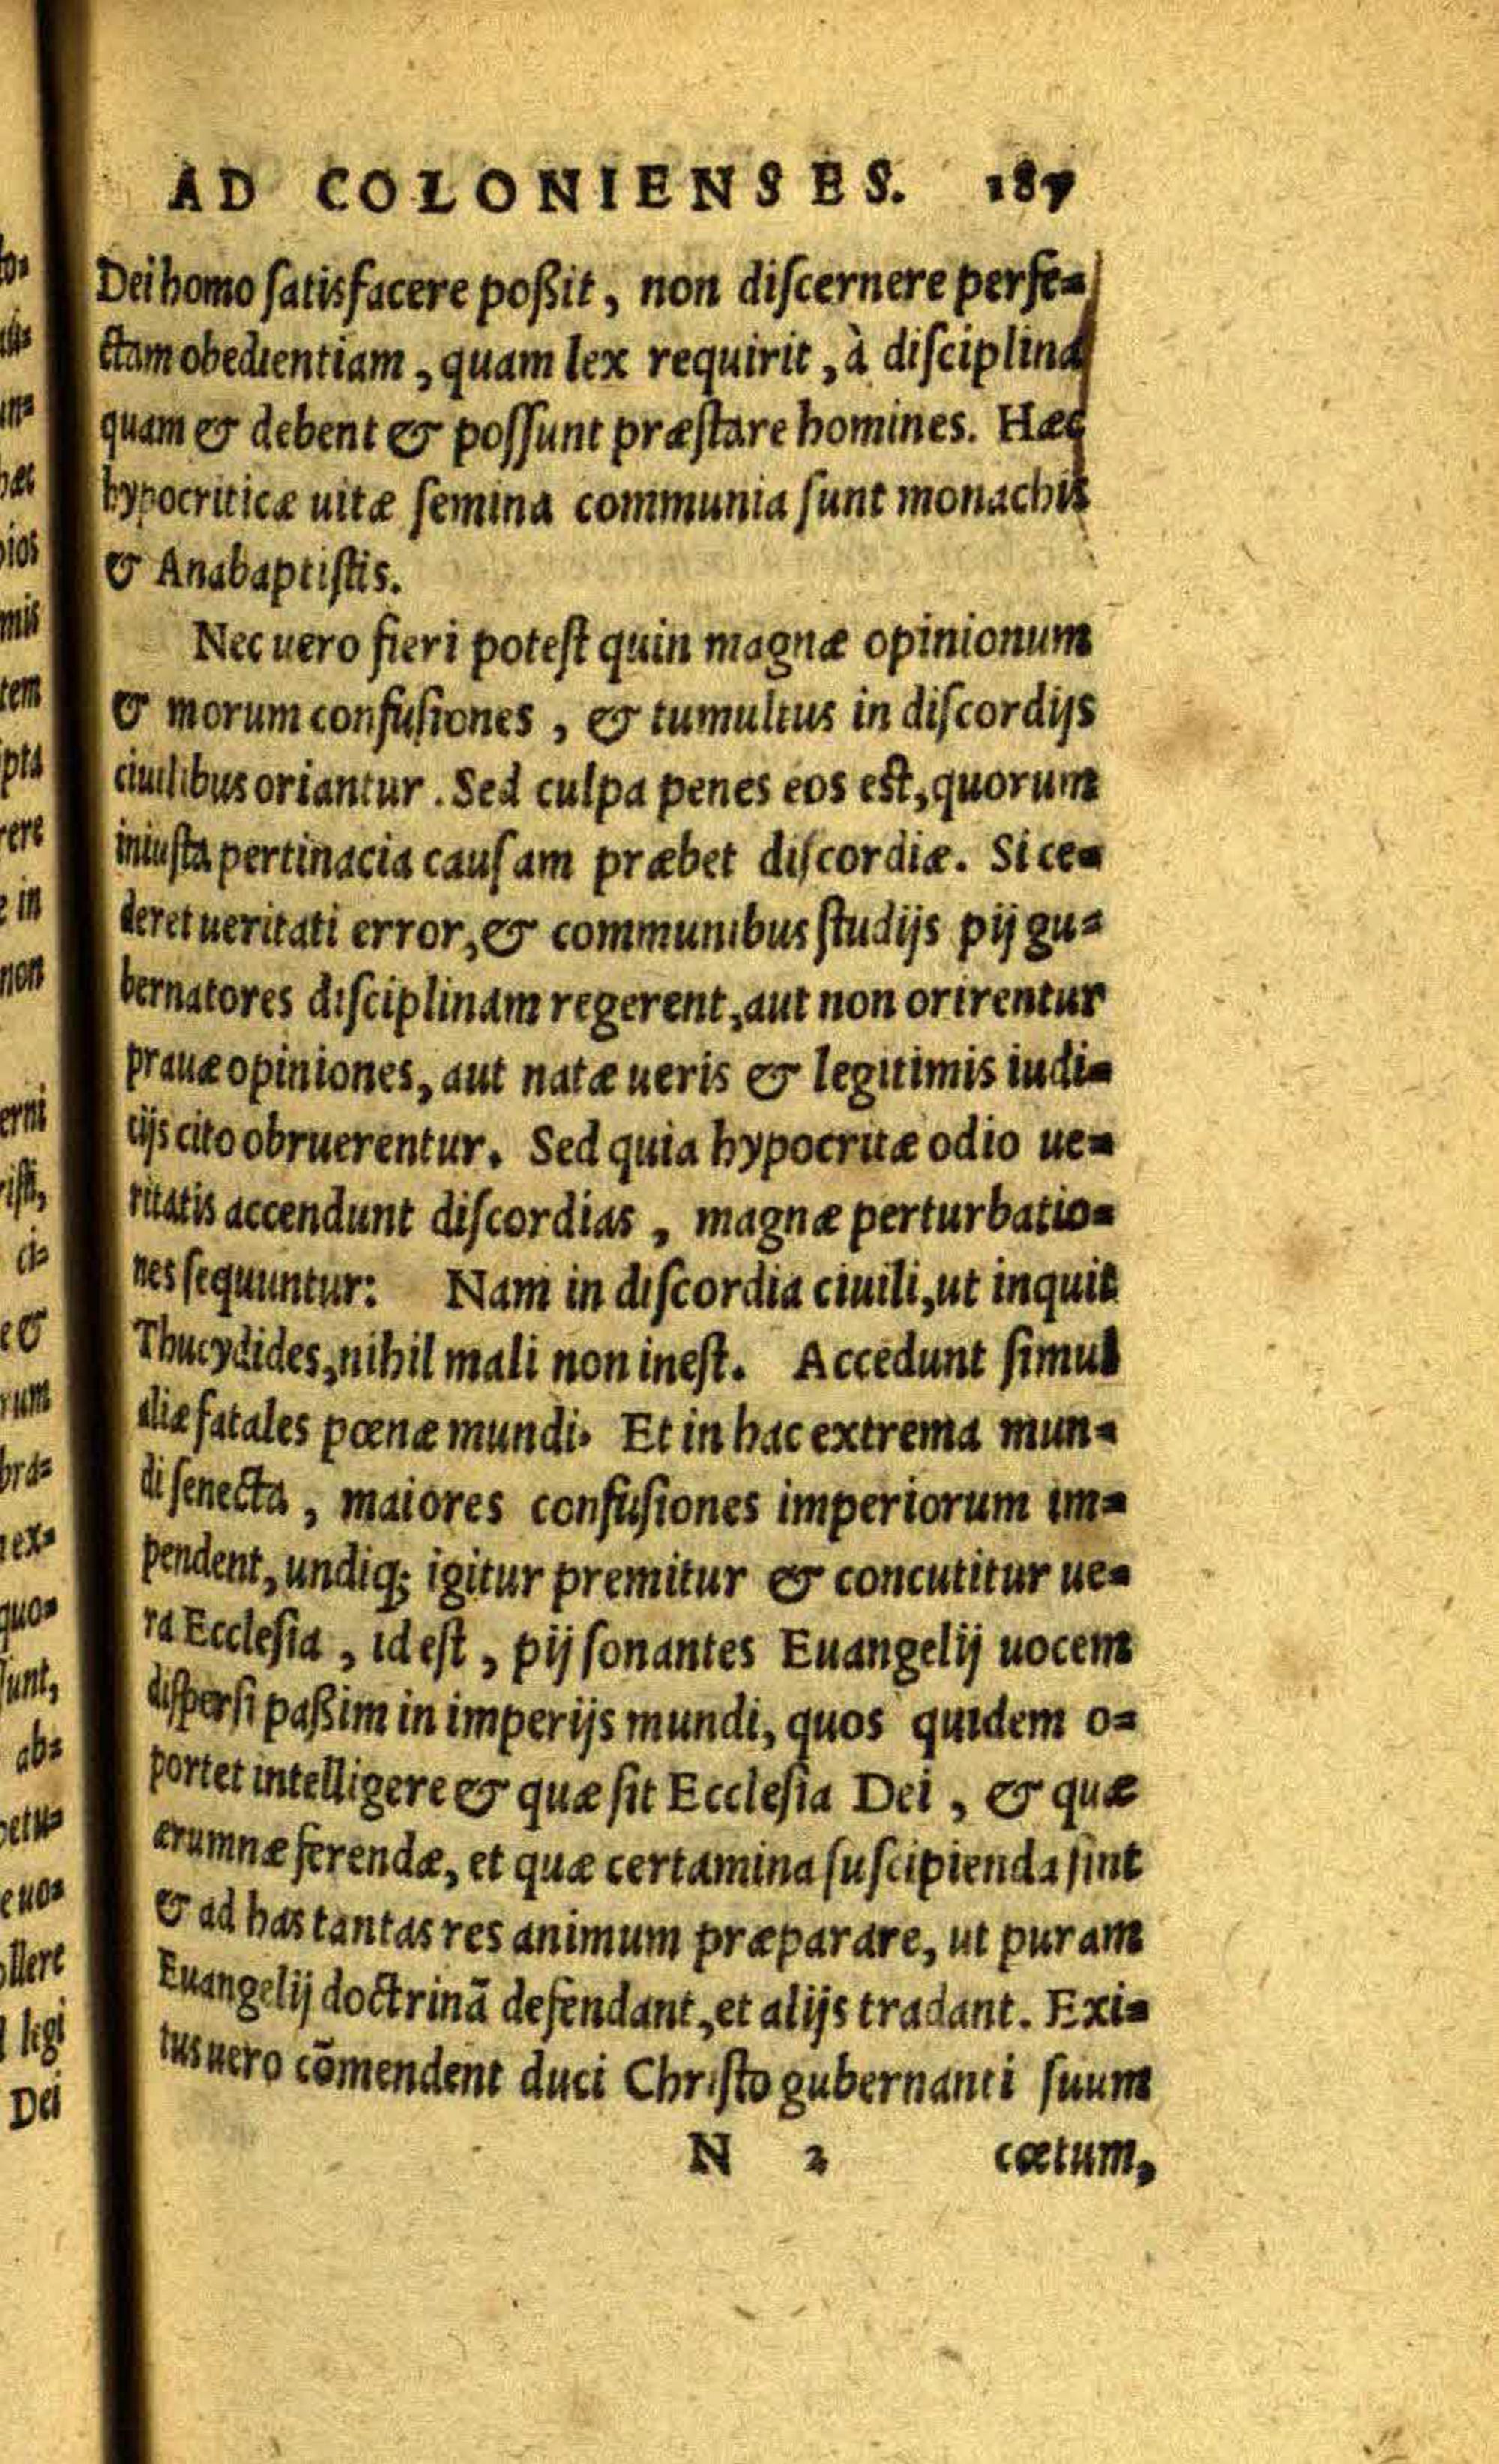 AD COLONIENSES. 187
Dei homo ſatisfacere poßit, non diſcernere perfe=
ctam obedientiam, quam lex requirit, à diſciplina
quam & debent & poſſunt præſtare homines. Hæc
hypocriticæ uitæ ſemina communia ſunt monachis
& Anabaptiſtis.
Nec uero fieri poteſt quin magnæ opinionum
& morum confuſiones, & tumultus in diſcordijs
ciuilibus oriantur. Sed culpa penes eos est, quorum
iniuſta pertinacia cauſam præbet diſcordiæ. Si ce=
deret ueritati error, & communibus ſtudijs pij gu=
bernatores diſciplinam regerent, aut non orirentur
prauæ opiniones, aut natæ ueris & legitimis iudi=
cijs cito obruerentur. Sed quia hypocritæ odio ue=
ritatis accendunt diſcordias, magnæ perturbatio=
nes ſequuntur: Nam in diſcordia ciuili, ut inquit
Thucydides, nihil mali non ineſt. Accedunt ſimul
aliæ fatales pœnæ mundi. Et in hac extrema mun=
di ſenecta, maiores confuſiones imperiorum im=
pendent, undiq; igitur premitur & concutitur ue=
ra Eccleſia, id eſt, pij ſonantes Euangelij uocem
diſperſi paßim in imperijs mundi, quos quidem o=
portet intelligere & quæ ſit Eccleſia Dei, & quæ
ærumnæ ferendæ, et quæ certamina ſuſcipienda ſint
& ad has tantas res animum præparare, ut puram
Euangelij doctrinā defendant, et alijs tradant. Exi=
tus uero cōmendent duci Chriſto gubernanti ſuum
N 2 cœtum,